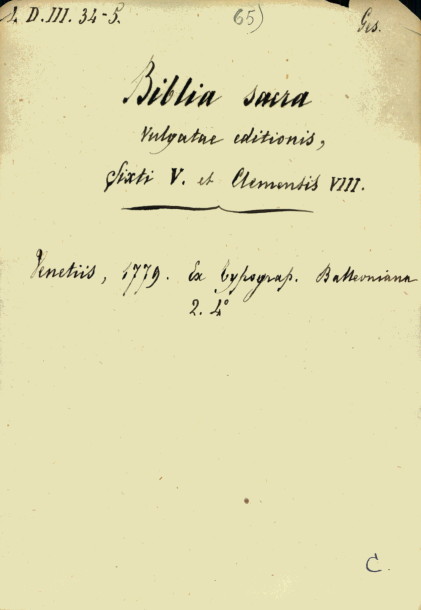 1. D. III. 34-5. 65) Ges.
Biblia sacra
Vulgatae editionis,
Sixti V. et Clementis VIII.
Venetiis, 1779. Ex typograp. Balleoniana
2. 4°
C.